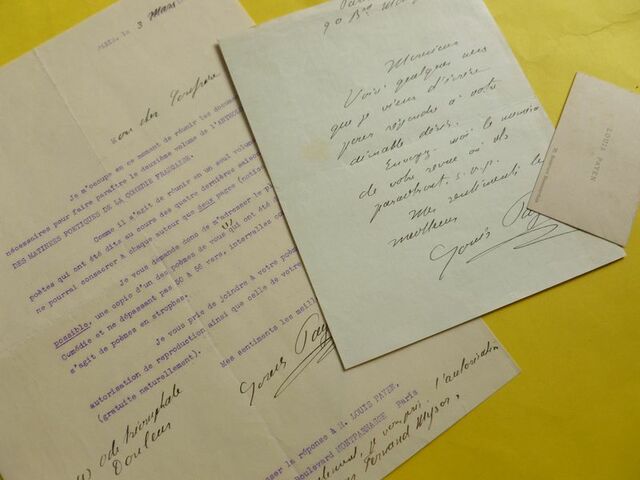 PARIS, le 3 Mars
Mon cher Confrère
Je m'occupe en ce moment de réunir les documents
nécessaires pour faire paraître le deuxième volume de l'ANTHOLOGIE
DES MATINEES POETIQUES DE LA COMEDIE FRANCAISE.
Comme il s'agit de réunir en un seul volume
poètes qui ont été dits au cours des quatre dernières saisons
ne pourrai consacrer à chaque auteur que deux pages (notice
Je vous demande donc de m'adresser le plus
possible, une copie d'un des poèmes de vous (1) qui ont été
Comédie et ne dépassant pas 50 à 55 vers, intervalles
s'agit de poèmes en strophes.
Je vous prie de joindre à votre poème
autorisation de reproduction ainsi que celle de votre
(gratuite naturellement).
Mes sentiments les meill
Louis Payen
(1) ode triomphale
Douleur
ser la réponse à M. LOUIS PAYEN,
Boulevard MONTPARNASSE Paris
je vous prie, l'autorisation
Fernand
90 Bd Mont
Monsieur
Voici quelques vers
que je viens d'écrire
pour répondre à votre
aimable désir.
Envoyez-moi le numéro
de votre revue où ils
paraîtront s.v.p.
Mes sentiments les
meilleurs
Louis Payen
LOUIS PAYEN